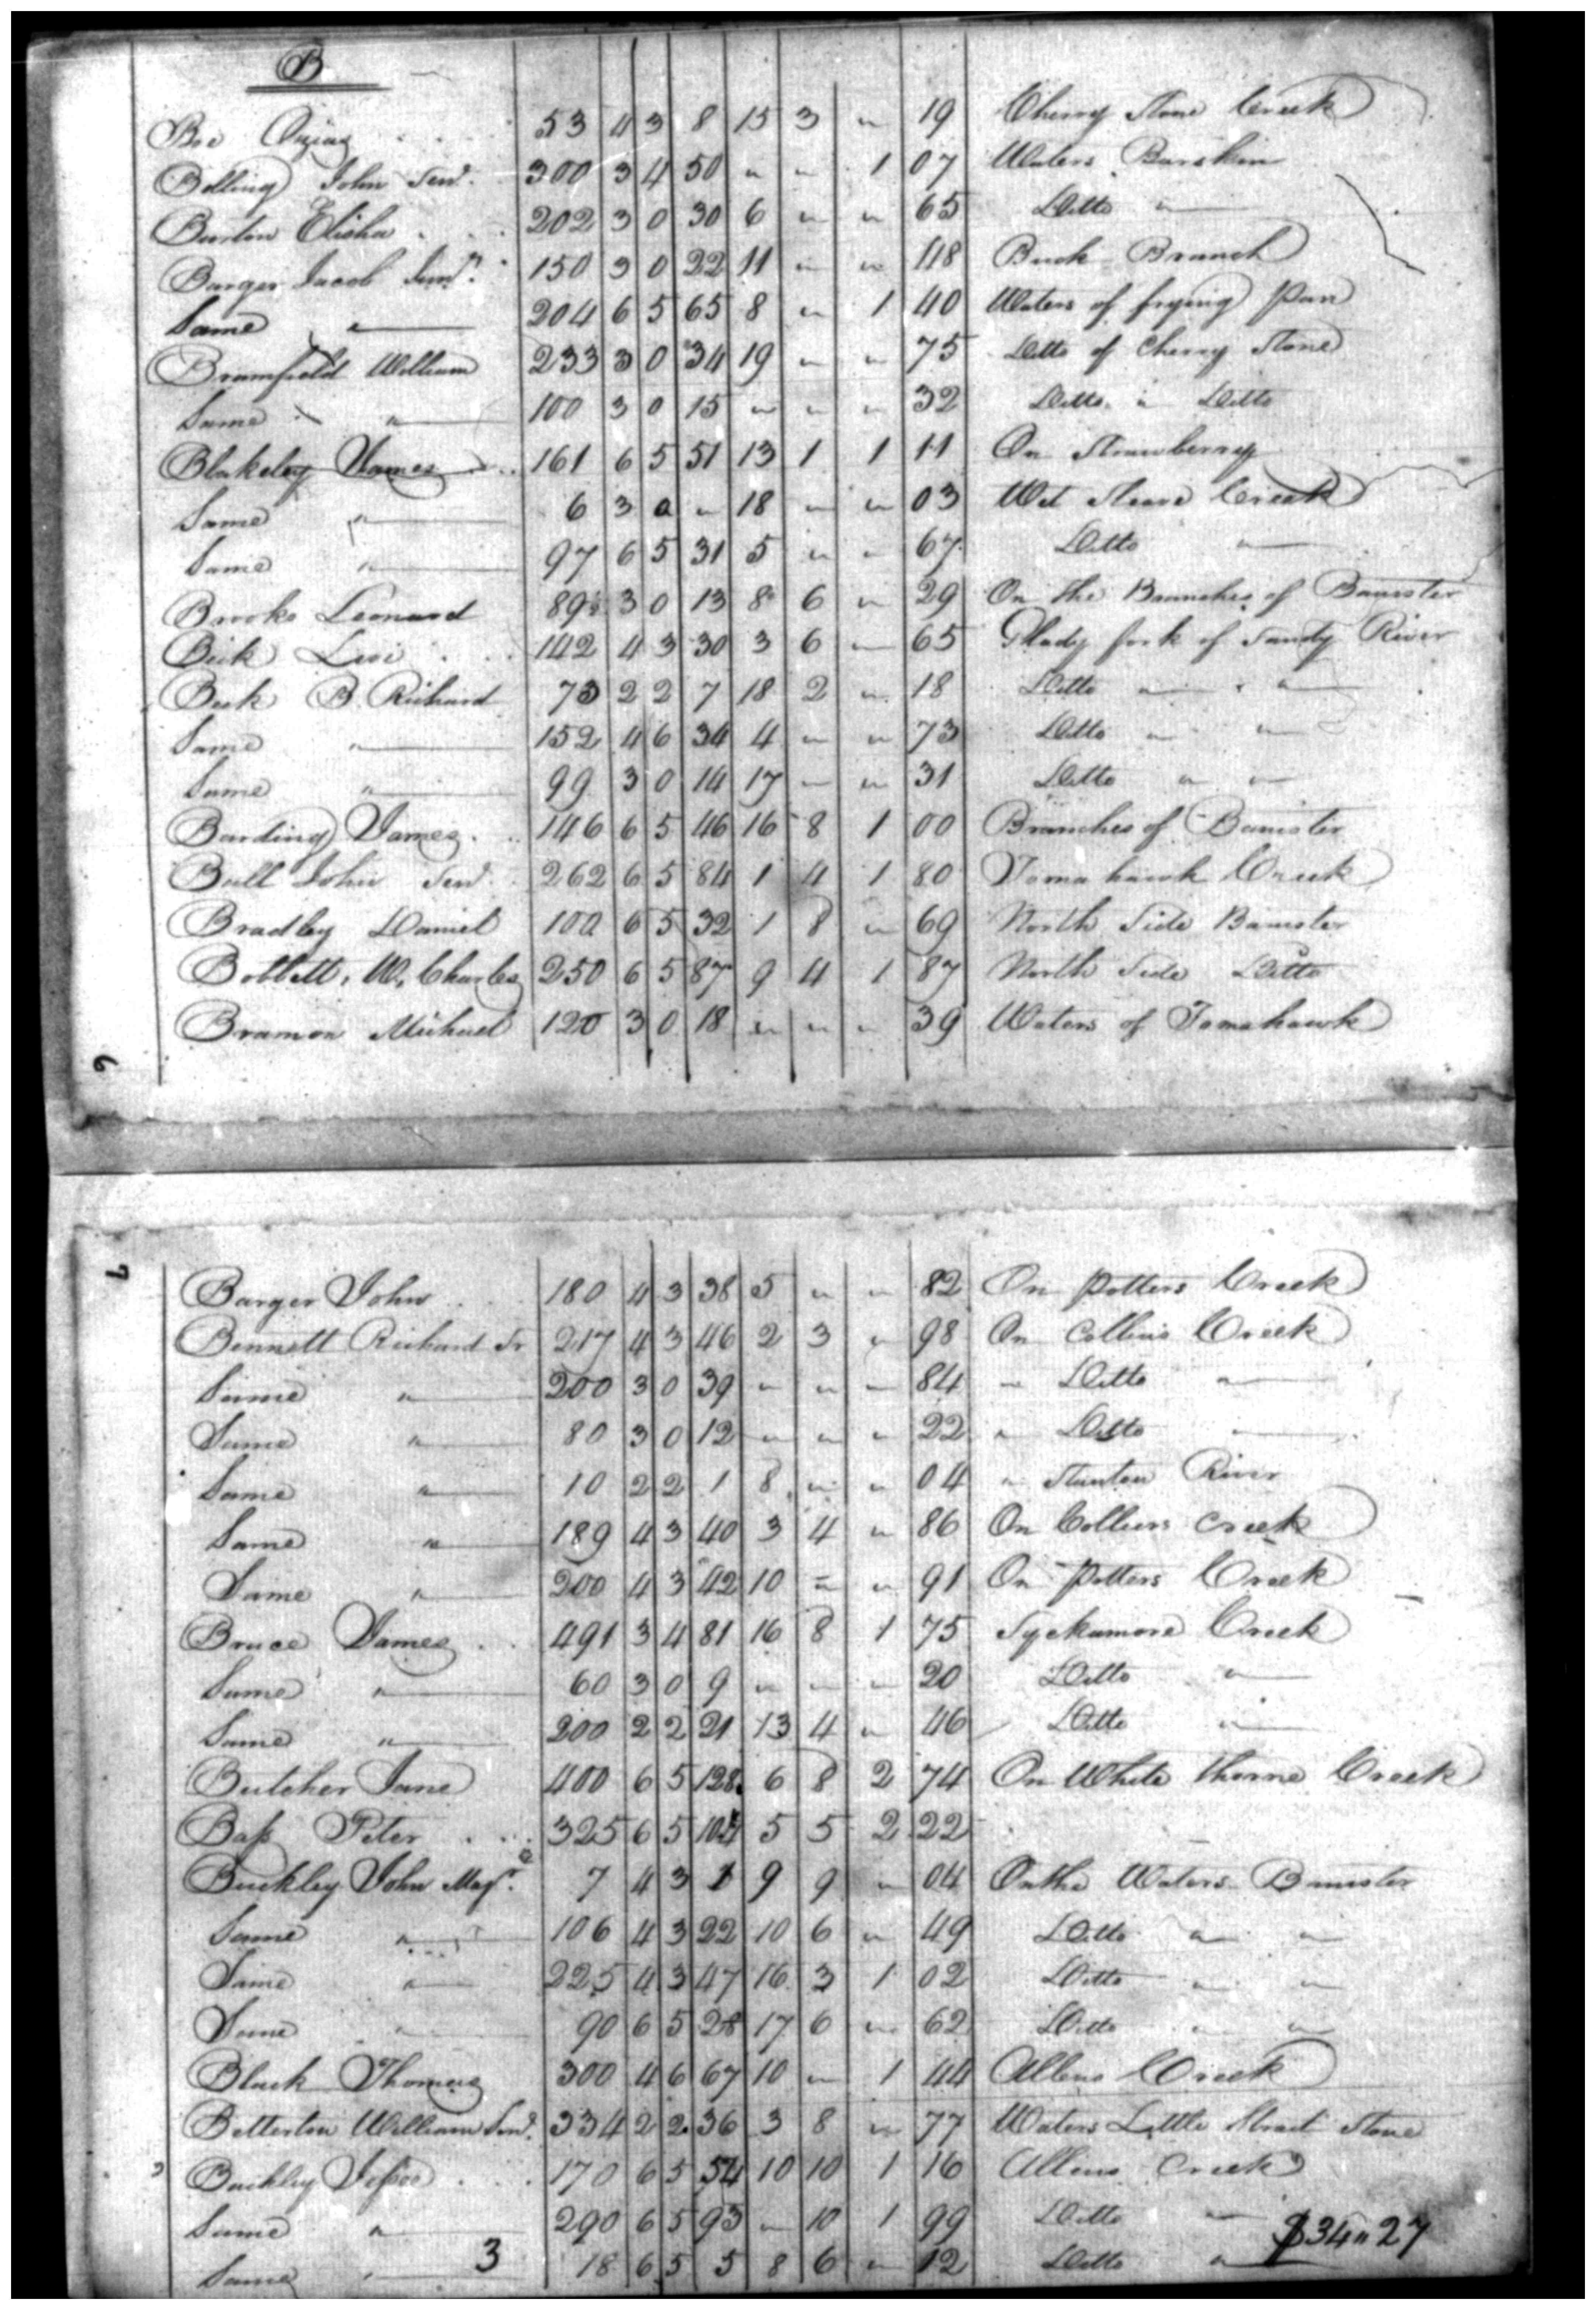 B
Boe Ozias 53 4 3 8 15 3 " 19 Cherry Stone Creek
Bolling John Senr. 300 3 4 50 " " 1 07 Waters Barskin
Burton Elisha 202 3 0 30 6 " " 65 Ditto "
Barger Jacob Senr. 150 3 0 22 11 " " 48 Buck Branch
Same " 204 6 5 65 8 " 1 40 Waters of frying Pan
Bramfield William 233 3 0 34 19 " " 75 Ditto of Cherry Stone
Same " 100 3 0 15 " " " 32 Ditto " Ditto
Blakeley James 161 6 5 51 13 1 1 11 On Strawberry
Same " 6 3 0 " 18 " " 03 Wet Sleave Creek
Same " 97 6 5 31 5 " " 67 Ditto "
Brooks Leonard 89½ 3 0 13 8 6 " 29 On the Branches of Banister
Beck Levi 142 4 3 30 3 6 " 65 Glady fork of Sandy River
Beck B Richard 73 2 2 7 18 2 " 18 Ditto " "
Same " 152 4 6 34 4 " " 73 Ditto " "
Same " 99 3 0 14 17 " " 31 Ditto " "
Barding James 146 6 5 46 16 8 1 00 Branches of Banister
Ball John Senr. 262 6 5 84 1 4 1 80 Tomahawk Creek
Bradley Daniel 100 6 5 32 1 8 " 69 North Side Banister
Bobbett, W. Charles 250 6 5 87 9 4 1 87 North Side Ditto
Braman Michael 120 3 0 18 " " " 39 Waters of Tomahawk
6
7
Barger John 180 4 3 38 5 " " 82 On Potters Creek
Bennett Richard Sr 217 4 3 46 2 3 " 98 On Collins Creek
Same " 200 3 0 39 " " " 84 " Ditto "
Same " 80 3 0 12 " " " 22 " Ditto
Same " 10 2 2 1 8 " " 04 " Stanton River
Same " 189 4 3 40 3 4 " 86 On Collins Creek
Same " 200 4 3 42 10 " " 91 On Potters Creek
Bruce James 491 3 4 81 16 8 1 75 Syckamore Creek
Same " 60 3 0 9 " " " 20 Ditto "
Same " 200 2 2 21 13 4 " 46 Ditto "
Butcher Jane 400 6 5 128 6 8 2 74 On White thorne Creek
Baſs Peter 325 6 5 104 5 5 2 22
Buckley John Majr. 7 4 3 1 9 9 " 04 On the Waters Banister
Same " 106 4 3 22 10 6 " 49 Ditto " "
Same " 225 4 3 47 16 3 1 02 Ditto " "
Same " 90 6 5 28 17 6 " 62 Ditto " "
Black Thomas 300 4 6 67 10 " 1 44 Allens Creek
Betterton William Senr. 334 2 2 36 3 8 " 77 Waters Little Strait Stone
Buckley 170 6 5 54 10 10 1 16 Allens Creek
Same " 290 6 5 93 " 10 1 99 Ditto "
Same " 18 6 5 5 8 6 " 12 Ditto "
3
$34"27